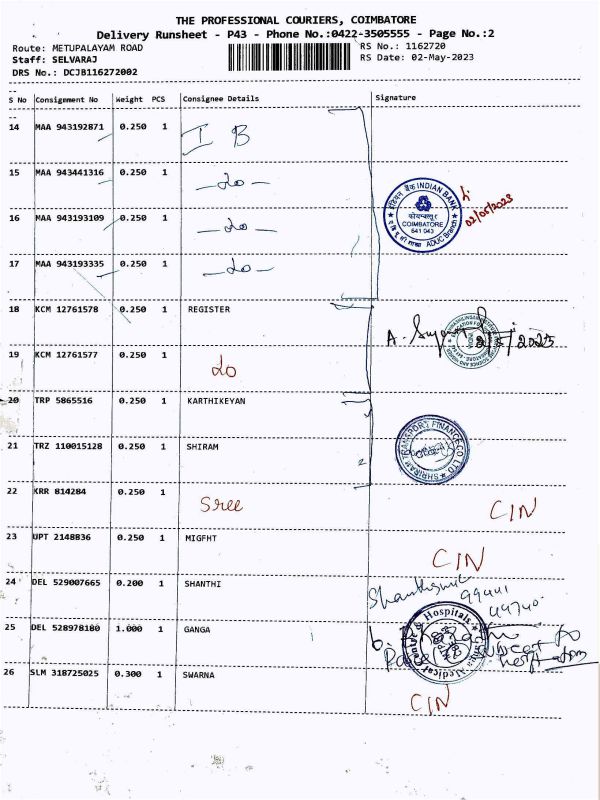 THE PROFESSIONAL COURIERS, COIMBATORE
Delivery Runsheet - P43 - Phone No.:0422-3505555 - Page No.:2
Route: METUPALAYAM ROAD
RS No.: 1162720
Staff: SELVARAJ
RS Date: 02-May-2023
DRS No.: DCJB116272002
S No Consignment No Weight PCS Consignee Details Signature
14 MAA 943192871 0.250 1 I B
15 MAA 943441316 0.250 1 —do—
16 MAA 943193109 0.250 1 —do—
17 MAA 943193335 0.250 1 —do—
इंडियन बैंक INDIAN BANK
कोयम्बत्तूर
COIMBATORE
641 043
ADUC Branch
02/05/2023
18 KCM 12761578 0.250 1 REGISTER
19 KCM 12761577 0.250 1 do
20 TRP 5865516 0.250 1 KARTHIKEYAN
21 TRZ 110015128 0.250 1 SHIRAM
SHRIRAM TRANSPORT FINANCE CO LTD
22 KRR 814284 0.250 1 Sree CIN
23 UPT 2148836 0.250 1 MIGFHT CIN
24 DEL 529007665 0.200 1 SHANTHI
99441
49740
25 DEL 528978180 1.000 1 GANGA
Ganga Medical Centre & Hospitals
26 SLM 318725025 0.300 1 SWARNA CIN